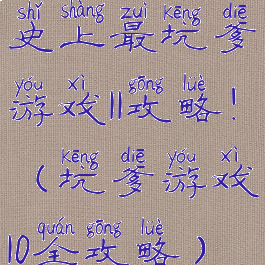 shǐ shàng zuì kēng diē
史上最坑爹
yóu xì gōng lüè
游戏11攻略！
kēng diē yóu xì
（坑爹游戏
quán gōng lüè
10全攻略）